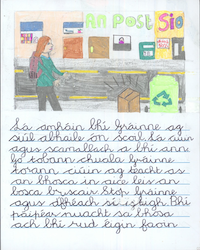 An Post Sio
Lá amháin bhí Gráinne ag
siúl abhaile ón scoil. Lá ciúin
agus scamallach a bhí ann.
Go tobann chuala Gráinne
torann ciúin ag teacht as
an bhosca in aice leis an
bosca bruscair. Stop Gráinne
agus d'fhéach sí isteach. Bhí
páipéar nuacht sa bhosca
ach bhí rud eigin faoin